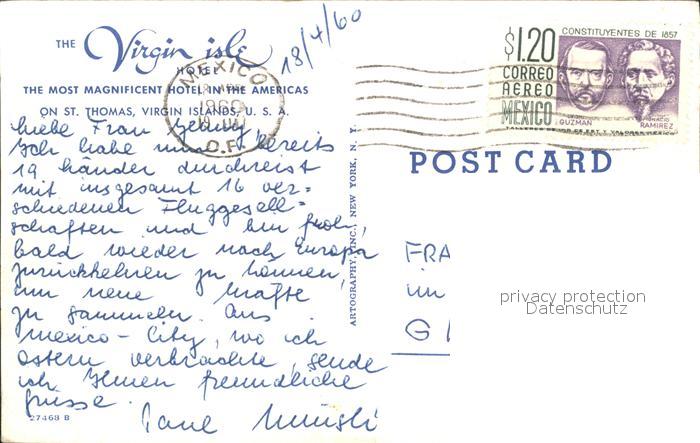 THE
Virgin isle
HOTEL
THE MOST MAGNIFICENT HOTEL IN THE AMERICAS
ON ST. THOMAS, VIRGIN ISLANDS, U. S. A.
18/4/60
MEXICO
1960
D.F.
$1.20
CORREO
AEREO
MEXICO
CONSTITUYENTES DE 1857
GUZMAN
IGNACIO
RAMIREZ
Liebe Frau
Ich habe nun bereits
19 Länder durchreist
mit insgesamt 16 ver-
schiedenen Fluggesell-
schaften und bin froh,
bald wieder nach Europa
zurückkehren zu können,
um neue Kräfte
zu sammeln. Aus
Mexico-City, wo ich
Ostern verbrachte, sende
ich Ihnen freundliche
Grüsse.
27468 B
ARTOGRAPHY, INC., NEW YORK, N. Y.
POST CARD
FRA
im
G
privacy protection
Datenschutz